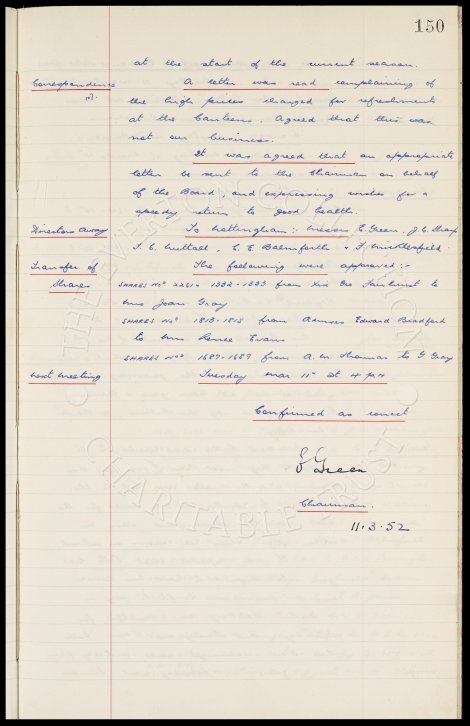 150
at the start of the current season.
Correspondence
A letter was read complaining of
the high prices charged for refreshments
at the Canteens. Agreed that this was
not our business.
It was agreed that an appropriate
letter be sent to the Chairman on behalf
of the Board and expressing wishes for a
speedy return to good health.
Directors away
To Nottingham:- Messrs E Green, J. C. Sharp
T. C. Nuttall, C. E. Balmforth & F. Micklesfield.
Transfer of
Shares
The following were approved:-
SHARES Nos 2261 & 1332-1333 from to
Mrs Joan Gray
SHARES Nos 1813-1815 from Edward Bradford
to Mrs Renee Evans
SHARES Nos 1687-1689 from A. W. Thomas to G Gray
Next meeting
Tuesday Mar 11th at 4 p.m
Confirmed as correct
E Green
Chairman.
11.3.52
THE EVERTON COLLECTION
CHARITABLE TRUST